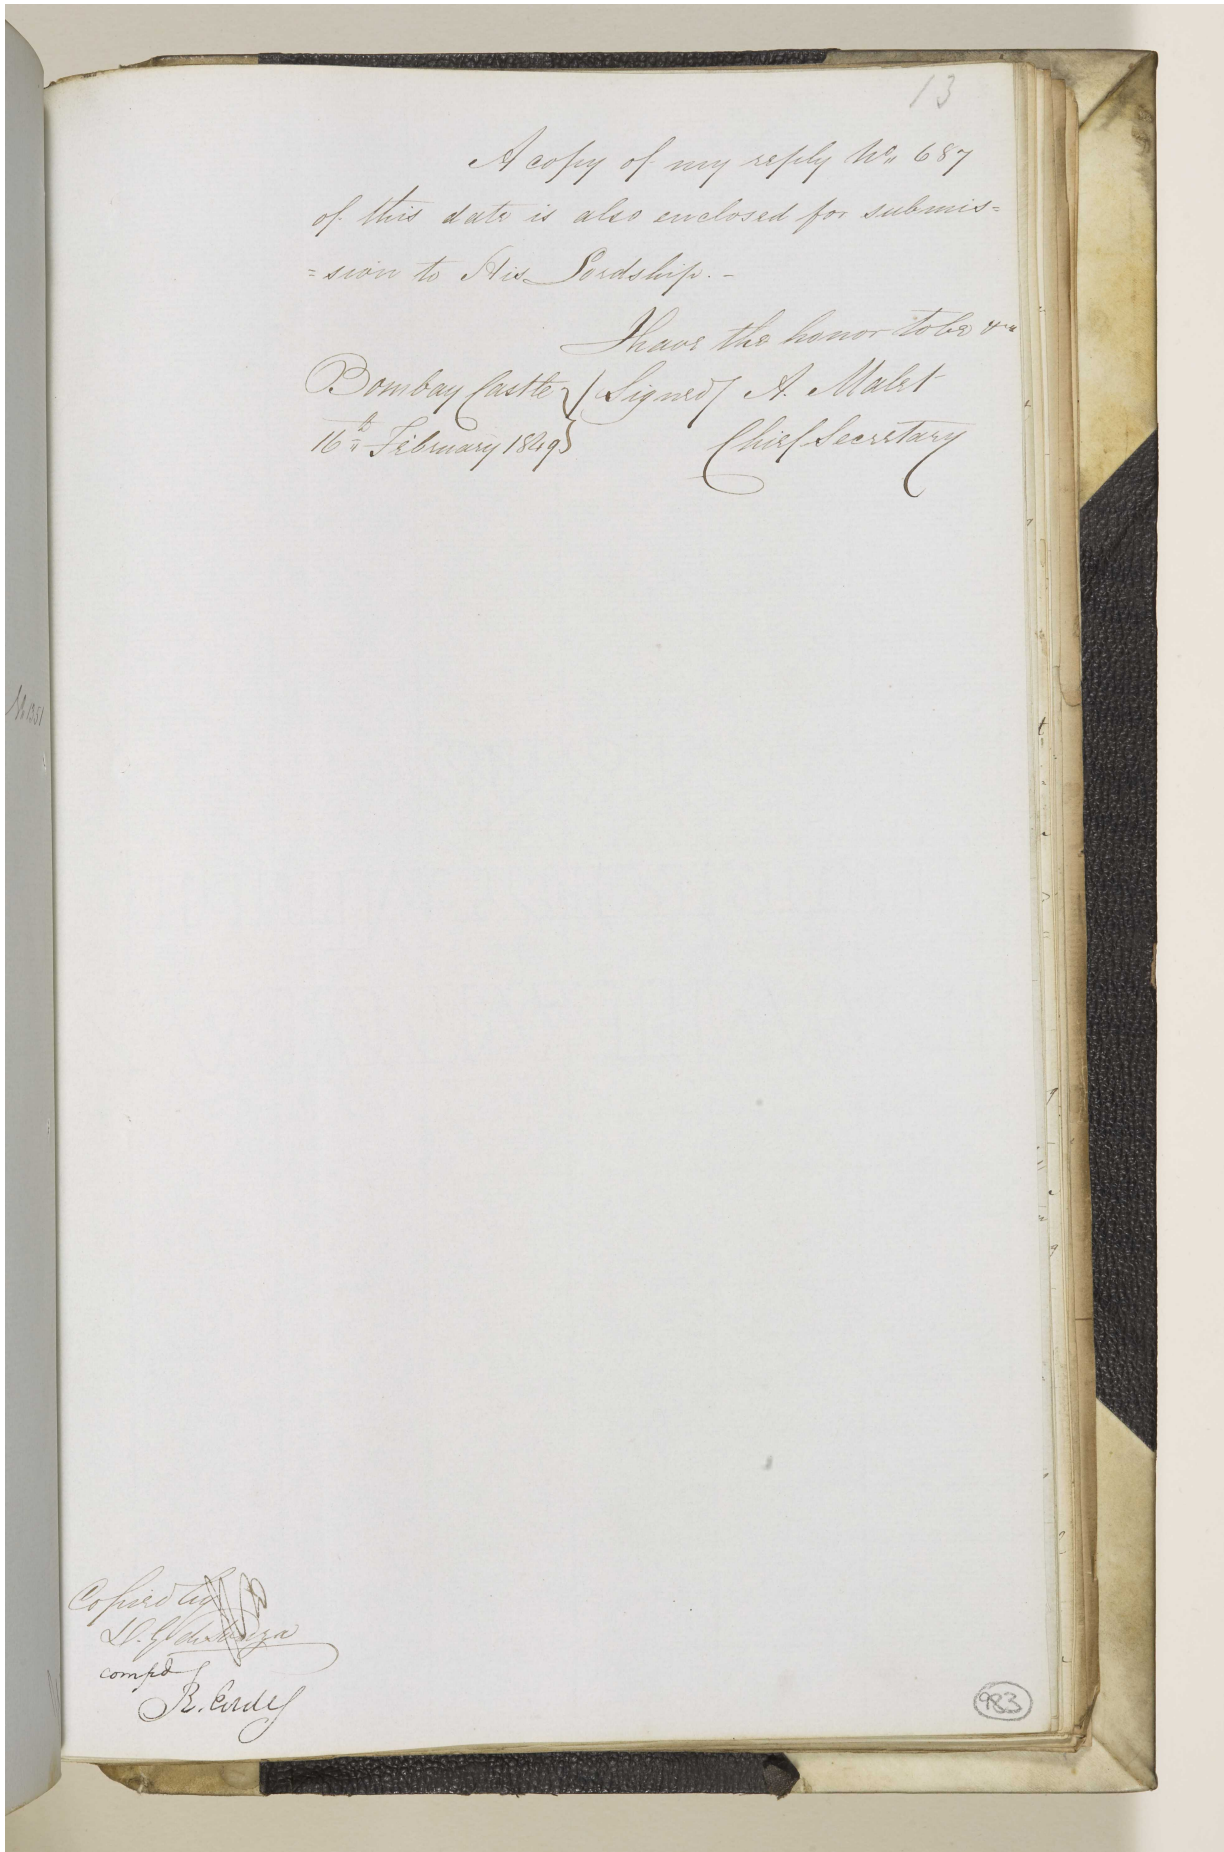 13
A copy of my reply No. 687
of this date is also enclosed for submis=
=sion to His Lordship. -
I have the honor to be &ca
Bombay Castle } (Signed) A. Malet
16th February 1849 } Chief Secretary
Copied by
compd
983